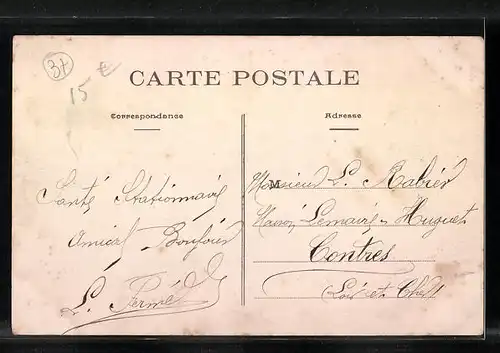 37
15 €
CARTE POSTALE
Correspondance
Adresse
Santé Stationnaire
Amical Bonjour
L. Fermé
Monsieur L. Rabier
Maison Lemaire-Huguet
Contres
Loir et Cher